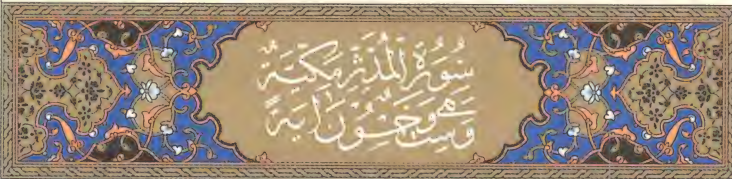 سُورَةُ المُدَّثِّرِ مَكِيَّةٌ
وَهِيَ سِتٌّ وَخَمْسُونَ آيَةً